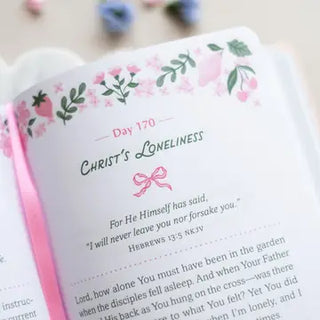 Day 170
CHRIST'S LONELINESS
For He Himself has said,
"I will never leave you nor forsake you."
HEBREWS 13:5 NKJV
Lord, how alone You must have been in the garden
when the disciples fell asleep. And when Your Father
His back as You hung on the cross—was there
to what You felt? Yet You did
when I'm lonely, and I
times.
instruc-